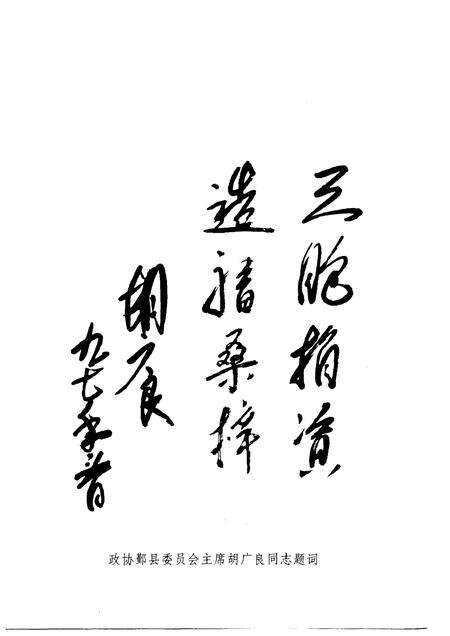 三胞捐资
造福桑梓
胡广良
九七年春
政协鄞县委员会主席胡广良同志题词